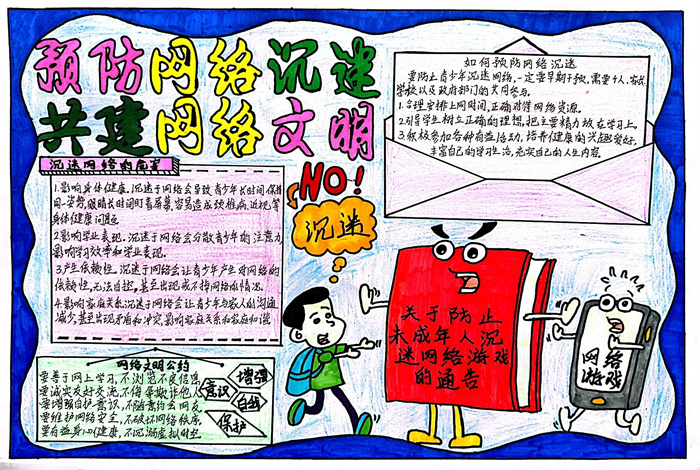 预防网络沉迷
共建网络文明
沉迷网络的危害
1.影响身体健康,沉迷于网络会导致青少年长时间保持
同一姿势,眼睛长时间盯着屏幕,容易造成颈椎病,近视等
身体健康问题
2.影响学业表现,沉迷于网络会分散青少年的注意力,
影响学习效率和学业表现。
3.产生依赖性,沉迷于网络会让青少年产生对网络的
依赖性,无法自控,甚至出现戒不掉网络的情况。
4.影响家庭关系,沉迷于网络会让青少年与家人的沟通
减少,甚至出现矛盾和冲突,影响家庭关系和家庭和谐
如何预防网络沉迷
要防止青少年沉迷网络,一定要早期干预,需要个人、家长
学校以及政府部门的共同参与。
1.合理安排上网时间,正确对待网络资源。
2.引导学生树立正确的理想,把主要精力放在学习上。
3.积极参加各种有益活动,培养健康的兴趣爱好,
丰富自己的学习生活,充实自己的人生内容。
NO!
沉迷
关于防止
未成年人沉
迷网络游戏
的通告
网络
游戏
网络文明公约
要善于网上学习,不浏览不良信息,
要诚实友好交流,不侮辱欺诈他人
要增强自护意识,不随意约会网友
要维护网络安全,不破坏网络秩序
要有益身心健康,不沉溺虚拟时空
增强
意识
自我
保护